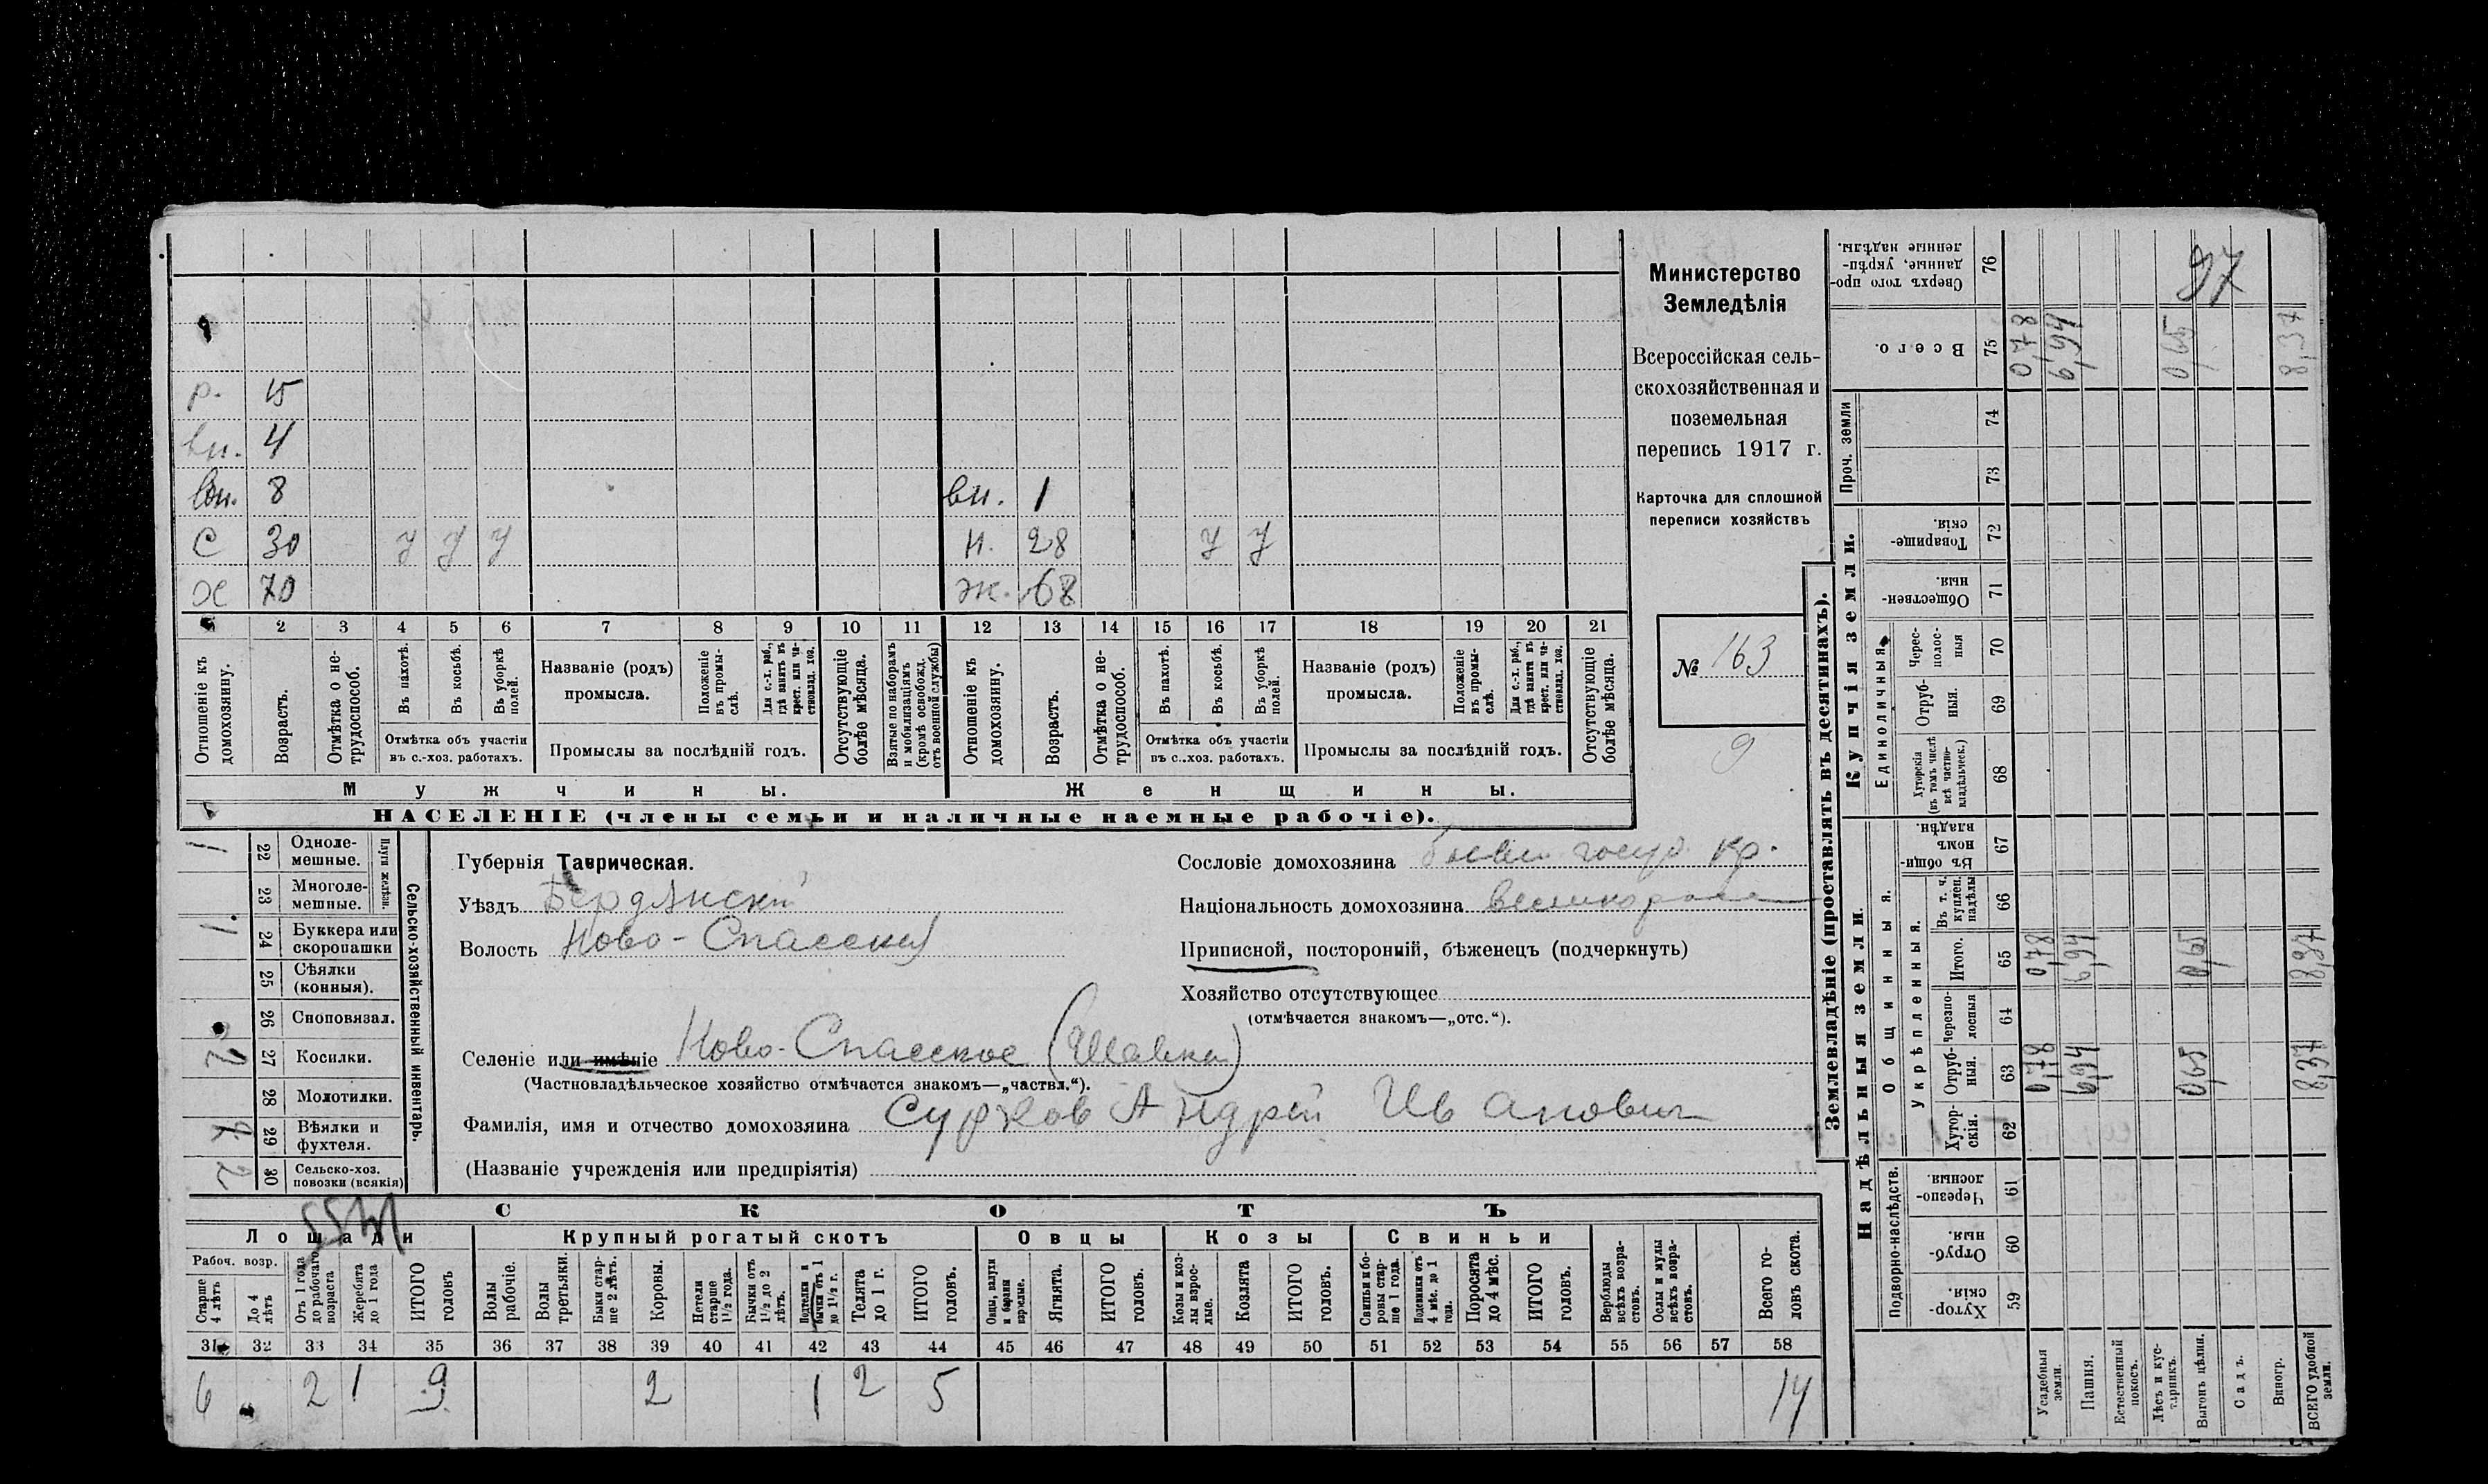 р. 15
вн. 4
вн. 8 вн. 1
С 30 У У У н. 28 У У
Х 70 ж. 68
1 2 3 4 5 6 7 8 9 10 11 12 13 14 15 16 17 18 19 20 21
Отношеніе къ домохозяину.
Возрастъ.
Отмѣтка о не-
трудоспособ.
Въ пахотѣ.
Въ косьбѣ.
Въ уборкѣ
полей.
Отмѣтка объ участіи
въ с.-хоз. работахъ.
Названіе (родъ)
промысла.
Положеніе
въ промы-
слѣ.
Для с.-х. раб.,
гдѣ занятъ въ
крест. или ча-
стновлад. хоз.
Промыслы за послѣдній годъ.
Отсутствующіе
болѣе мѣсяца.
Взятые по наборамъ
и мобилизаціямъ
(кромѣ освобожд.
отъ военной службы)
Отношеніе къ
домохозяину.
Возрастъ.
Отмѣтка о не-
трудоспособ.
Въ пахотѣ.
Въ косьбѣ.
Въ уборкѣ
полей.
Отмѣтка объ участіи
въ с.-хоз. работахъ.
Названіе (родъ)
промысла.
Положеніе
въ промы-
слѣ.
Для с.-х. раб.,
гдѣ занята въ
крест. или ча-
стновлад. хоз.
Промыслы за послѣдній годъ.
Отсутствующіе
болѣе мѣсяца.
Мужчины. Женщины.
НАСЕЛЕНІЕ (члены семьи и наличные наемные рабочіе).
Министерство
Земледѣлія
Всероссійская сель-
скохозяйственная и
поземельная
перепись 1917 г.
Карточка для сплошной
переписи хозяйствъ
№ 163
9
1 22 Одноле-
мешные.
23 Многоле-
мешные.
Плуги желѣзн.
1. 24 Буккера или
скоропашки
25 Сѣялки
(конныя).
26 Сноповязал.
2 27 Косилки.
28 Молотилки.
29 Вѣялки и
фухтеля.
2 30 Сельско-хоз.
повозки (всякія)
Сельско-хозяйственный инвентарь.
Губернія Таврическая.
Уѣздъ Бердянскій
Волость Ново-Спасская
Сословіе домохозяина бывш. госуд. кр.
Національность домохозяина великоросс
Приписной, посторонній, бѣженецъ (подчеркнуть)
Хозяйство отсутствующее
(отмѣчается знакомъ—„отс.“).
Селеніе или имѣніе Ново-Спасское (Шавки)
(Частновладѣльческое хозяйство отмѣчается знакомъ—„частвл.“).
Фамилія, имя и отчество домохозяина Сурков Андрей Иванович
(Названіе учрежденія или предпріятія)
СКОТЪ
Лошади Крупный рогатый скотъ Овцы Козы Свиньи
Рабоч. возр.
Старше
4 лѣтъ
До 4
лѣтъ
Отъ 1 года
до рабочаго
возраста
Жеребята
до 1 года
ИТОГО
головъ
Волы
рабочіе.
Волы
третьяки.
Быки стар-
ше 2 лѣтъ.
Коровы.
Нетели
старше
1½ года.
Бычки отъ
1½ до 2
лѣтъ.
Подтелки и
бычки отъ 1
до 1½ г.
Телята
до 1 г.
ИТОГО
головъ.
Овцы, валухи
и бараны
взрослые.
Ягнята.
ИТОГО
головъ.
Козы и коз-
лы взрос-
лые.
Козлята
ИТОГО
головъ.
Свиньи и бо-
ровы стар-
ше 1 года.
Подсвинки отъ
4 мѣс. до 1
года.
Поросята
до 4 мѣс.
ИТОГО
головъ.
Верблюды
всѣхъ возра-
стовъ.
Ослы и мулы
всѣхъ возра-
стовъ.
Всего го-
ловъ скота.
31 32 33 34 35 36 37 38 39 40 41 42 43 44 45 46 47 48 49 50 51 52 53 54 55 56 57 58
6 2 1 9 2 1 2 5 14
Землевладѣніе (проставлять въ десятинахъ).
Надѣльныя земли. Купчія земли. Проч. земли
Подворно-наслѣдств.
Общинныя.
Укрѣпленныя.
Единоличныя.
Хутор-
скія. 59
Отруб-
ныя. 60
Черезпо-
лосныя. 61
Хутор-
скія. 62
Отруб-
ныя. 63 0,78 6,94 0,65 8,37
Черезпо-
лосныя 64
Итого. 65 0,78 6,94 0,65 8,37
Въ т. ч.
куплен.
надѣлы 66
Въ общи-
номъ
владѣн. 67
Хуторскія
(въ томъ числѣ
всѣ частно-
владѣльческ.) 68
Отруб-
ныя. 69
Черес-
полос-
ныя 70
Обществен-
ныя. 71
Товарище-
скія. 72
73
74
Всего. 75 0,78 6,94 0,65 8,37
Сверхъ того про-
данные, укрѣп-
ленные надѣлы. 76
97
Усадебныя
земли.
Пашня.
Естественный
покосъ.
Лѣсъ и кус-
тарникъ.
Выгонъ цѣлин.
Садъ.
Виногр.
ВСЕГО удобной
земли.